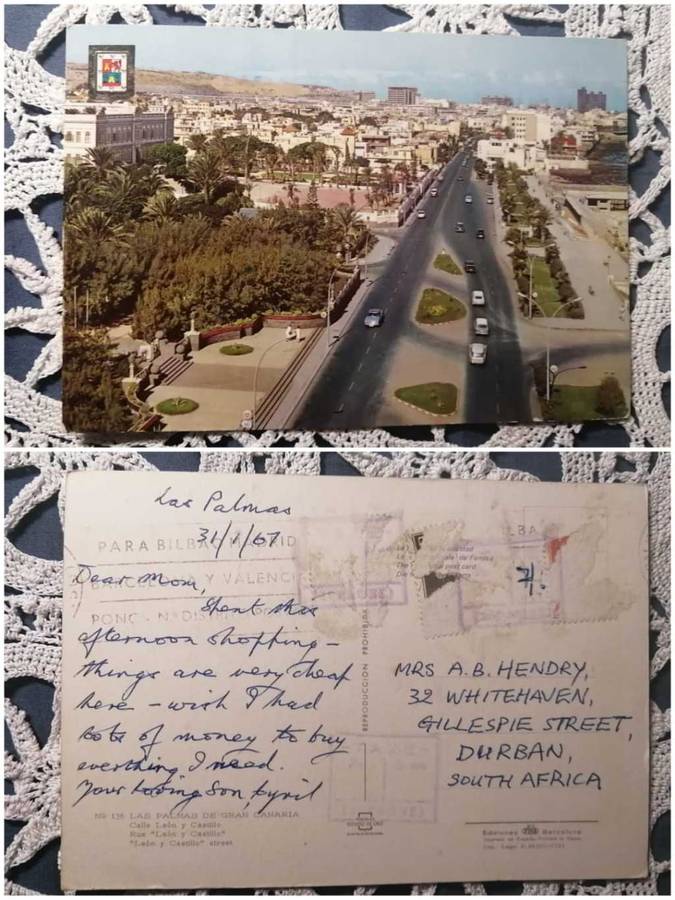 Las Palmas
31/1/67
PARA BILBAO MADRID
Dear Mom,
BARCELONA Y VALENCIA
Spent this
PONGA Nº DISTRITO
afternoon shopping -
things are very cheap
here - wish I had
lots of money to buy
everthing I need.
Your loving Son, Cyril
Nº 136 LAS PALMAS DE GRAN CANARIA
Calle León y Castillo
Rue "León y Castillo"
"León y Castillo" street
REPRODUCCION PROHIBIDA
MRS A.B. HENDRY,
32 WHITEHAVEN,
GILLESPIE STREET,
DURBAN,
SOUTH AFRICA
Ediciones Barcelona